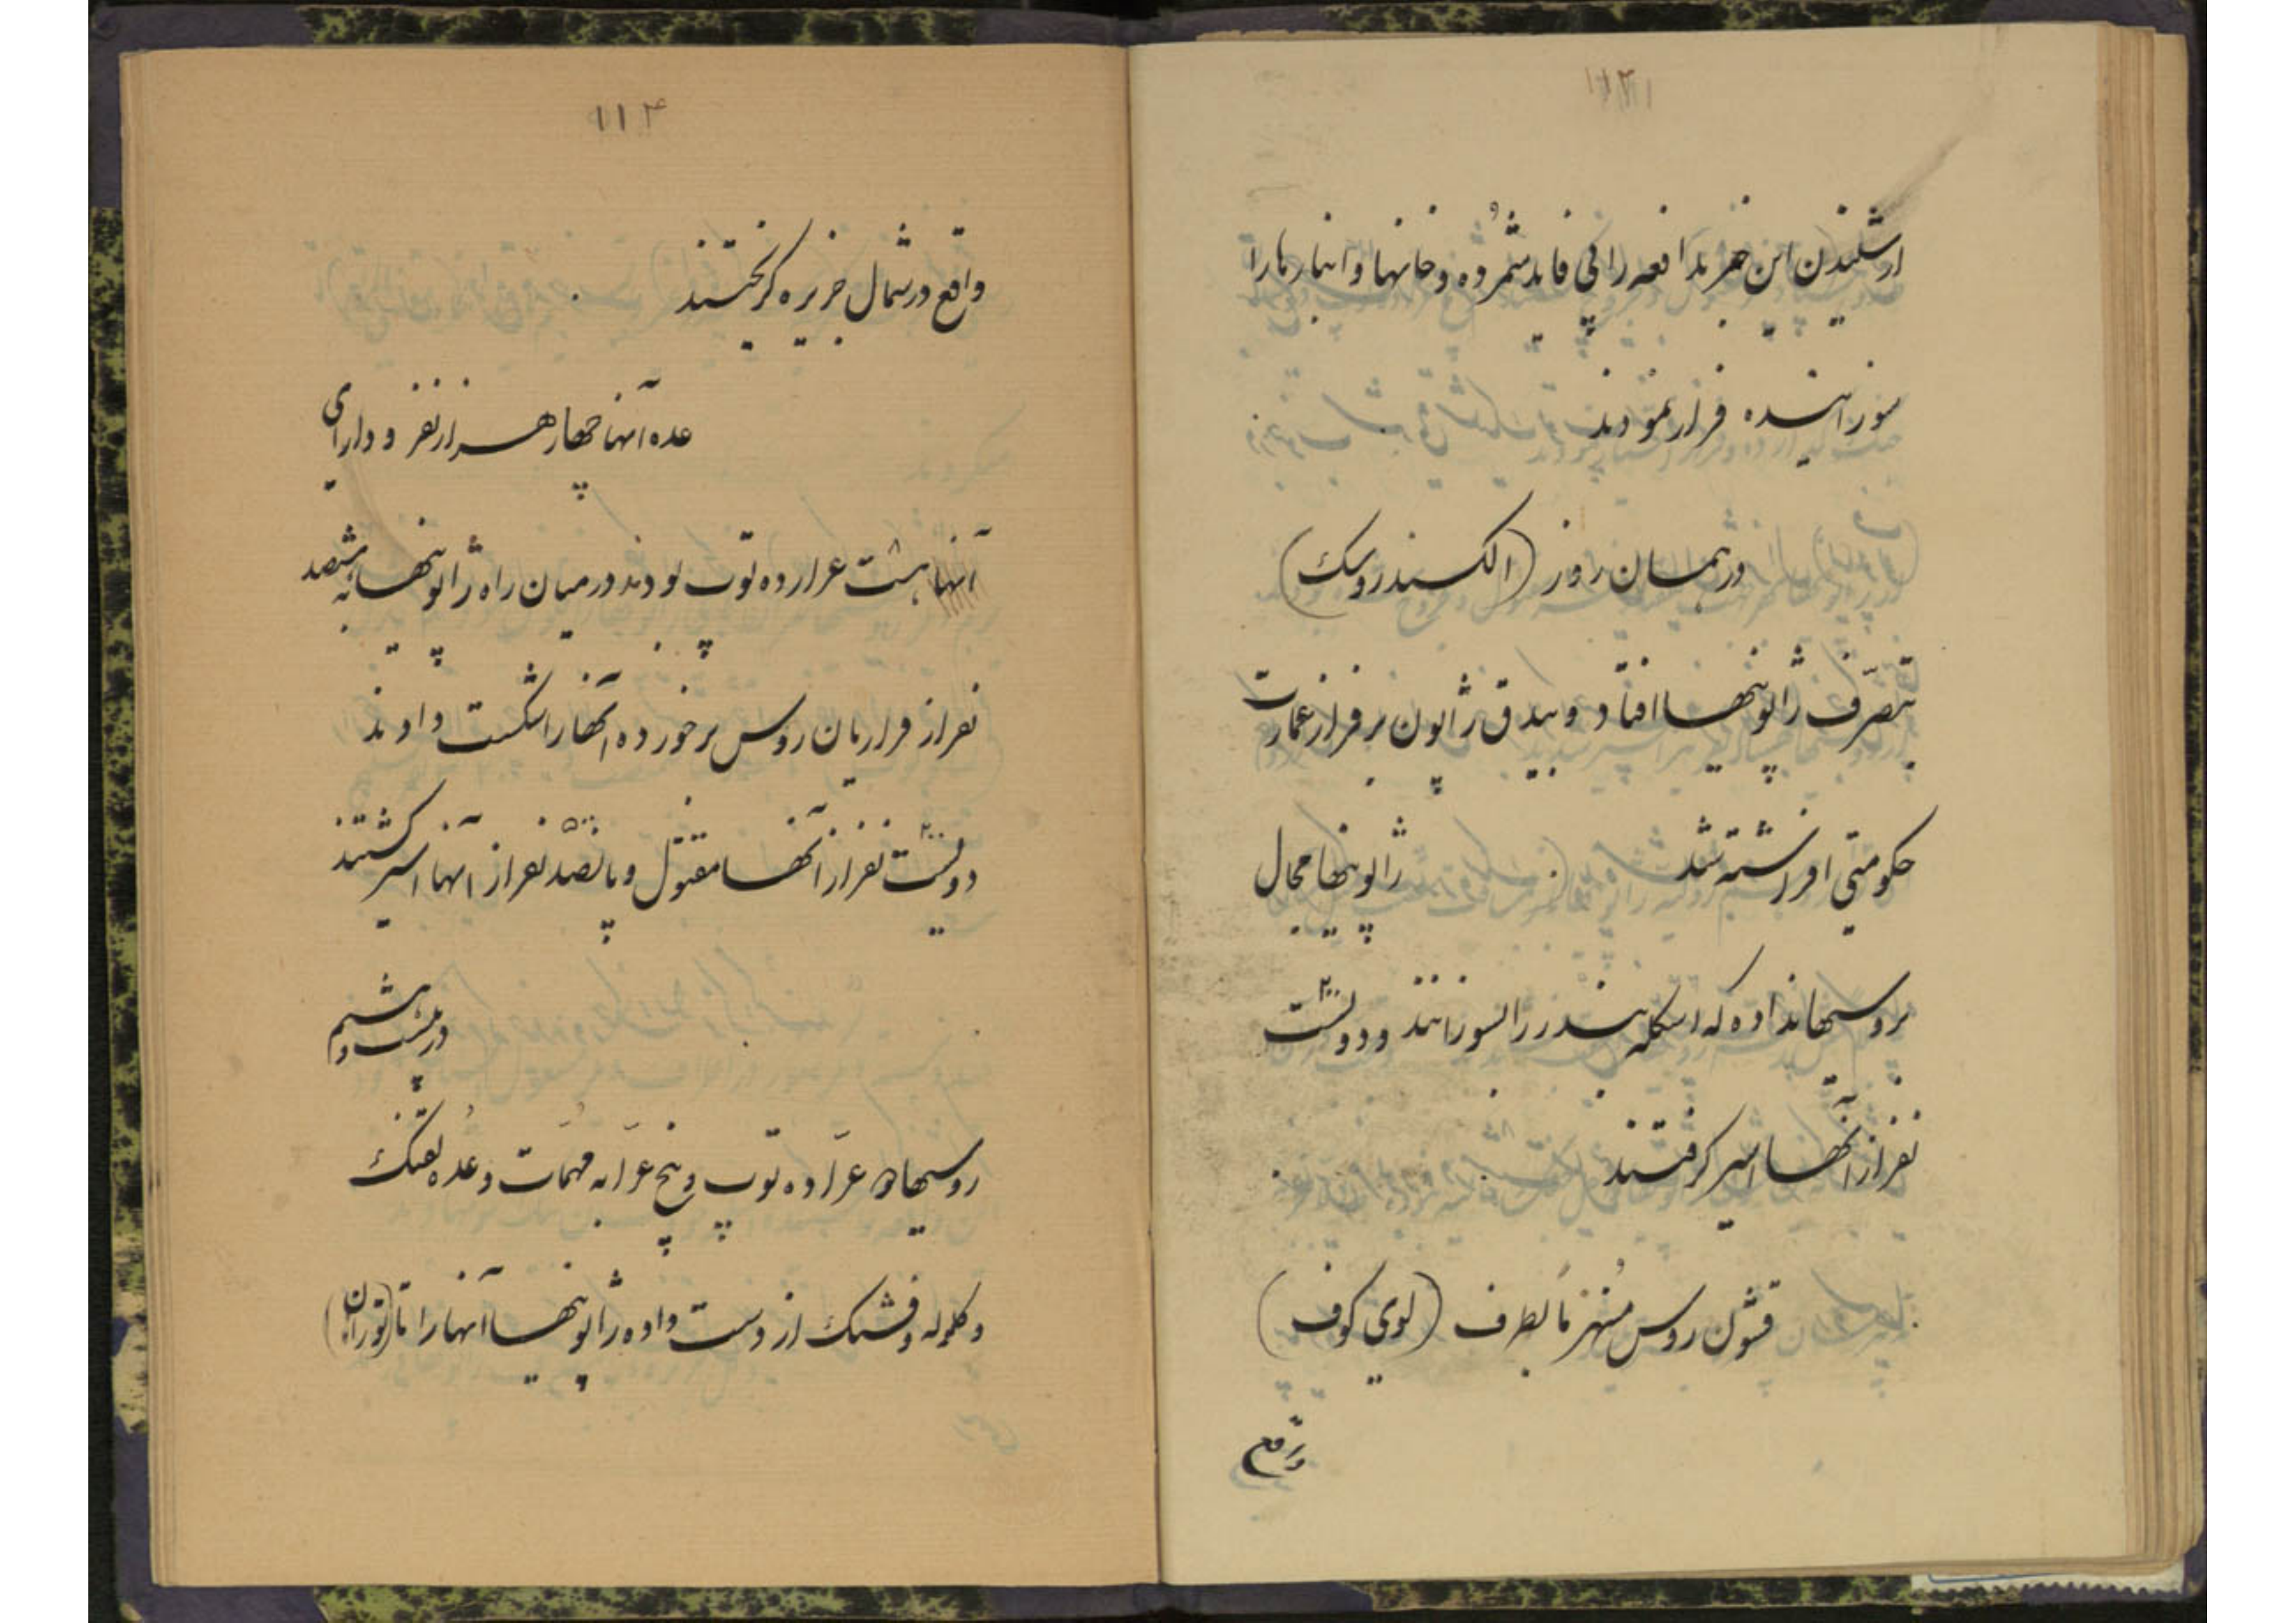 از شنیدن این خبر مدافعه را بی فایده شمرده و خانها و انبارها را
سوزانیده فرار نمودند
در همان روز (الکسندروسک)
بتصرّف ژاپونیها افتاد و بیدق ژاپون بر فراز عمارت
حکومتی افراشته شد ژاپونیها مجال
بروسیها نداده که اسکله بندر را بسوزانند و دویست ۲۰۰
نفر از آنها اسیر گرفتند
قشون روس منهزماً بطرف (لوی کوف)
واقع
۱۱۴
واقع در شمال جزیره گریختند
عده آنها چهار هزار نفر و دارای
آنها هشت عراده توپ بودند در میان راه ژاپونیها به هشتصد
نفر از فراریان روس برخورده آنها را شکست دادند
دویست ۲۰۰ نفر از آنها مقتول و پانصد ۵۰۰ نفر از آنها اسیر گشتند
در بیست و هشتم
روسیها عرّاده توپ و پنج عرّابه مهمّات و عُده تفنگ
و گلوله و فشنگ از دست داده ژاپونیها آنها را تا (توران)